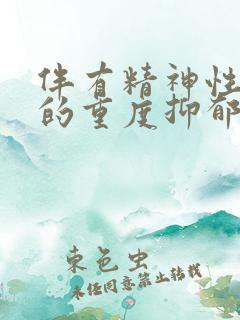 伴有精神性
的重度抑郁
束色虫
未经同意禁止转载